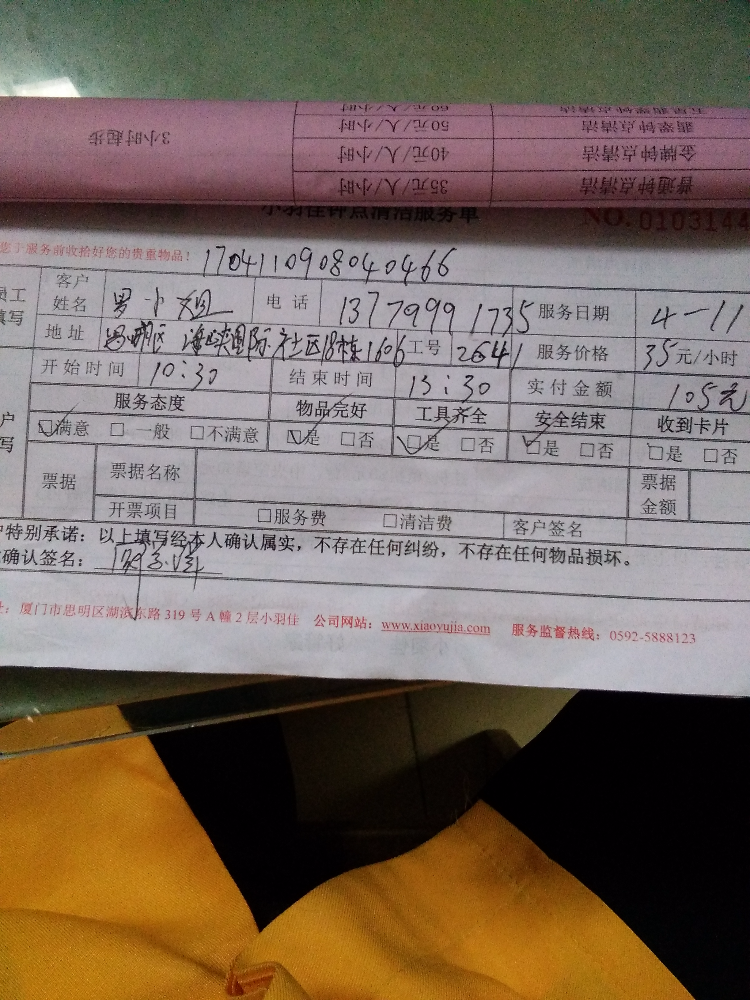 五星翡翠钟点清洁 60元/人/小时
翡翠钟点清洁 50元/人/小时
金牌钟点清洁 40元/人/小时 3小时起步
普通钟点清洁 35元/人/小时
小羽佳钟点清洁服务单 NO. 0103144
服务前收拾好您的贵重物品！ 1704110908040466
员工填写 客户姓名 罗小姐 电话 13779991735 服务日期 4-11
地址 思明区 海峡国际社区18栋1606 工号 2641 服务价格 35元/小时
开始时间 10:30 结束时间 13:30 实付金额 105元
服务态度 物品完好 工具齐全 安全结束 收到卡片
☑满意 □一般 □不满意 ☑是 □否 ☑是 □否 ☑是 □否 □是 □否
票据 票据名称 票据金额
开票项目 □服务费 □清洁费 客户签名
户特别承诺：以上填写经本人确认属实，不存在任何纠纷，不存在任何物品损坏。
确认签名：
址：厦门市思明区湖滨东路 319 号 A 幢 2 层小羽佳 公司网站：www.xiaoyujia.com 服务监督热线：0592-5888123